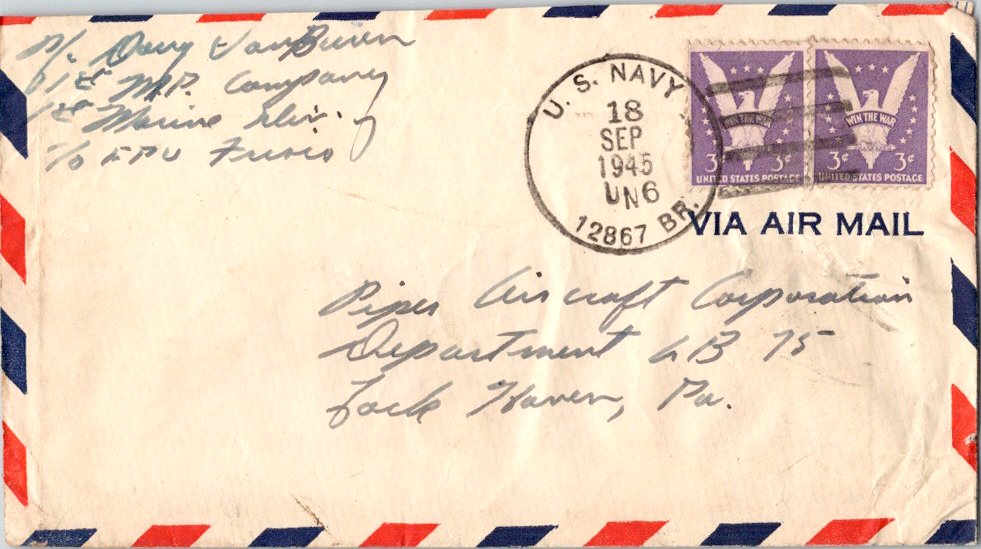 VanBuren
1st M.P. Company
1st Marine Div.
c/o FPO Frisco
U. S. NAVY
18
SEP
1945
UN6
12867 BR.
WIN THE WAR
3¢ 3¢
UNITED STATES POSTAGE
WIN THE WAR
3¢ 3¢
UNITED STATES POSTAGE
VIA AIR MAIL
Piper Aircraft Corporation
Department LB 75
Lock Haven, Pa.